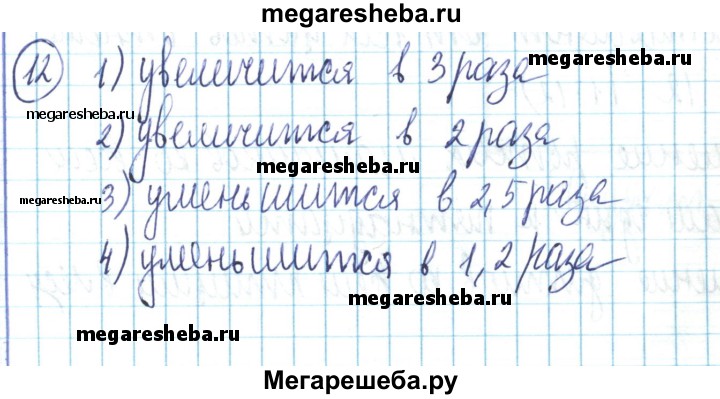 megaresheba.ru
12 1) увеличится в 3 раза
megaresheba.ru
2) увеличится в 2 раза
megaresheba.ru
megaresheba.ru
3) уменьшится в 2,5 раза
4) уменьшится в 1,2 раза
megaresheba.ru
megaresheba.ru
Мегарешеба.ру